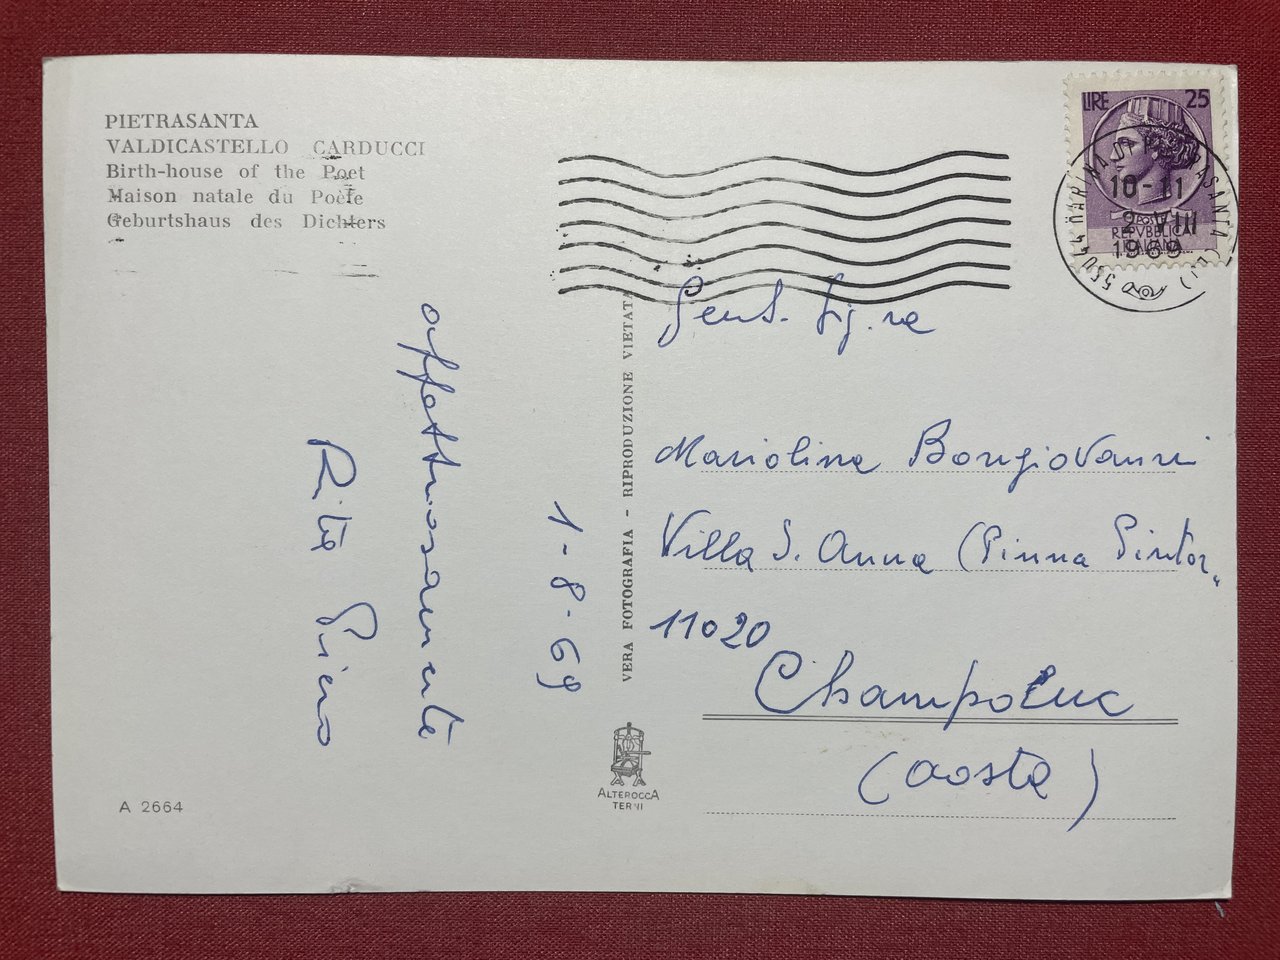 PIETRASANTA
VALDICASTELLO CARDUCCI
Birth-house of the Poet
Maison natale du Poète
Geburtshaus des Dichters
LIRE 25
POSTE
REPVBBLICA
ITALIANA
55044 MARINA DI PIETRASANTA (LU)
10-11
2 VIII
1969
Gent. Sig.ra
Mariolina Bongiovanni
Villa S. Anna (Pinna Pintor)
11020
Champoluc
(Aosta)
1-8-69
affettuosamente
Rita Piero
VERA FOTOGRAFIA - RIPRODUZIONE VIETATA
ALTEROCCA
TERNI
A 2664